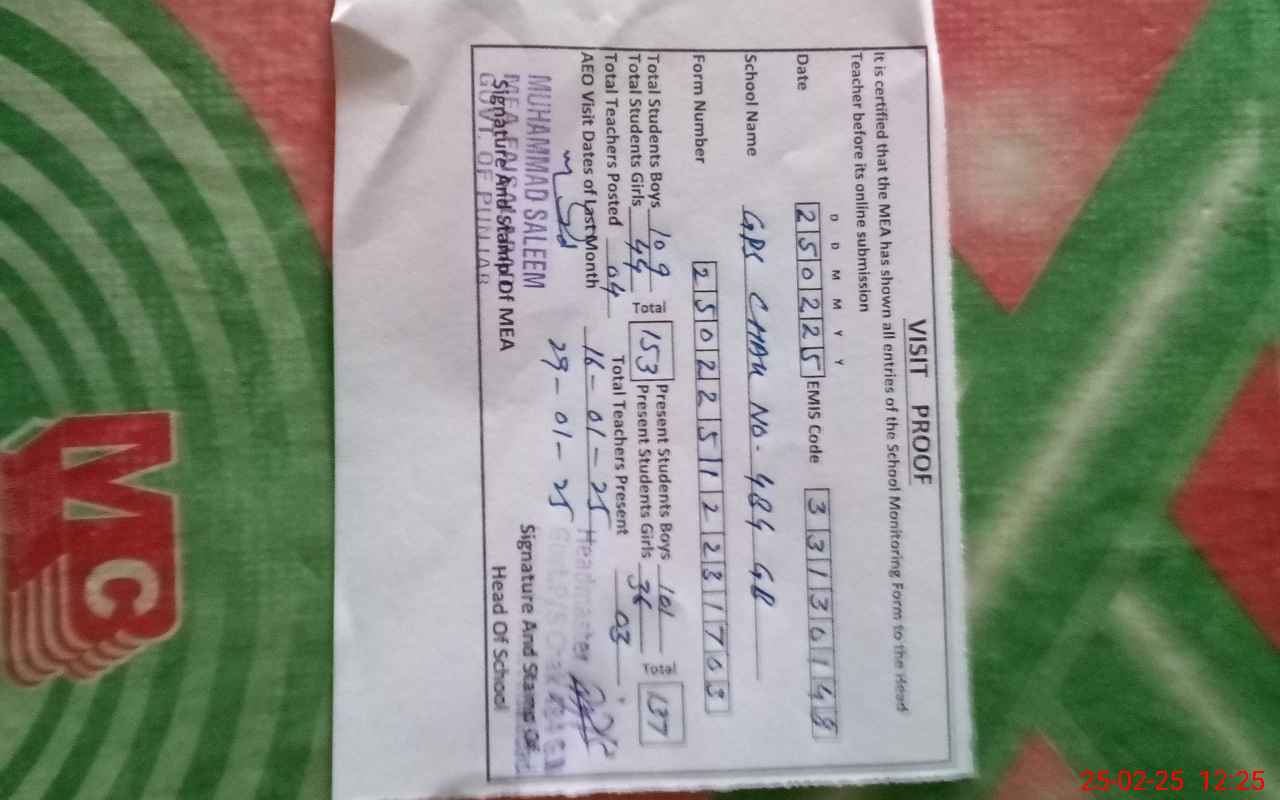 VISIT PROOF
It is certified that the MEA has shown all entries of the School Monitoring Form to the Head
Teacher before its online submission
D D M M Y Y
Date 250225 EMIS Code 33130148
School Name GPS CHAK NO. 484 GB
Form Number 2502251223170
Total Students Boys 109 Total 153 Present Students Boys 101 Total 137
Total Students Girls 44 Present Students Girls 36
Total Teachers Posted 04 Total Teachers Present 03
AEO Visit Dates of Last Month 16-01-25
29-01-25
Headmaster
MUHAMMAD SALEEM
MEA
GOVT. OF PUNJAB
Signature And Stamp Of MEA
Signature And Stamp Of
Head Of School
MC
25-02-25 12:25